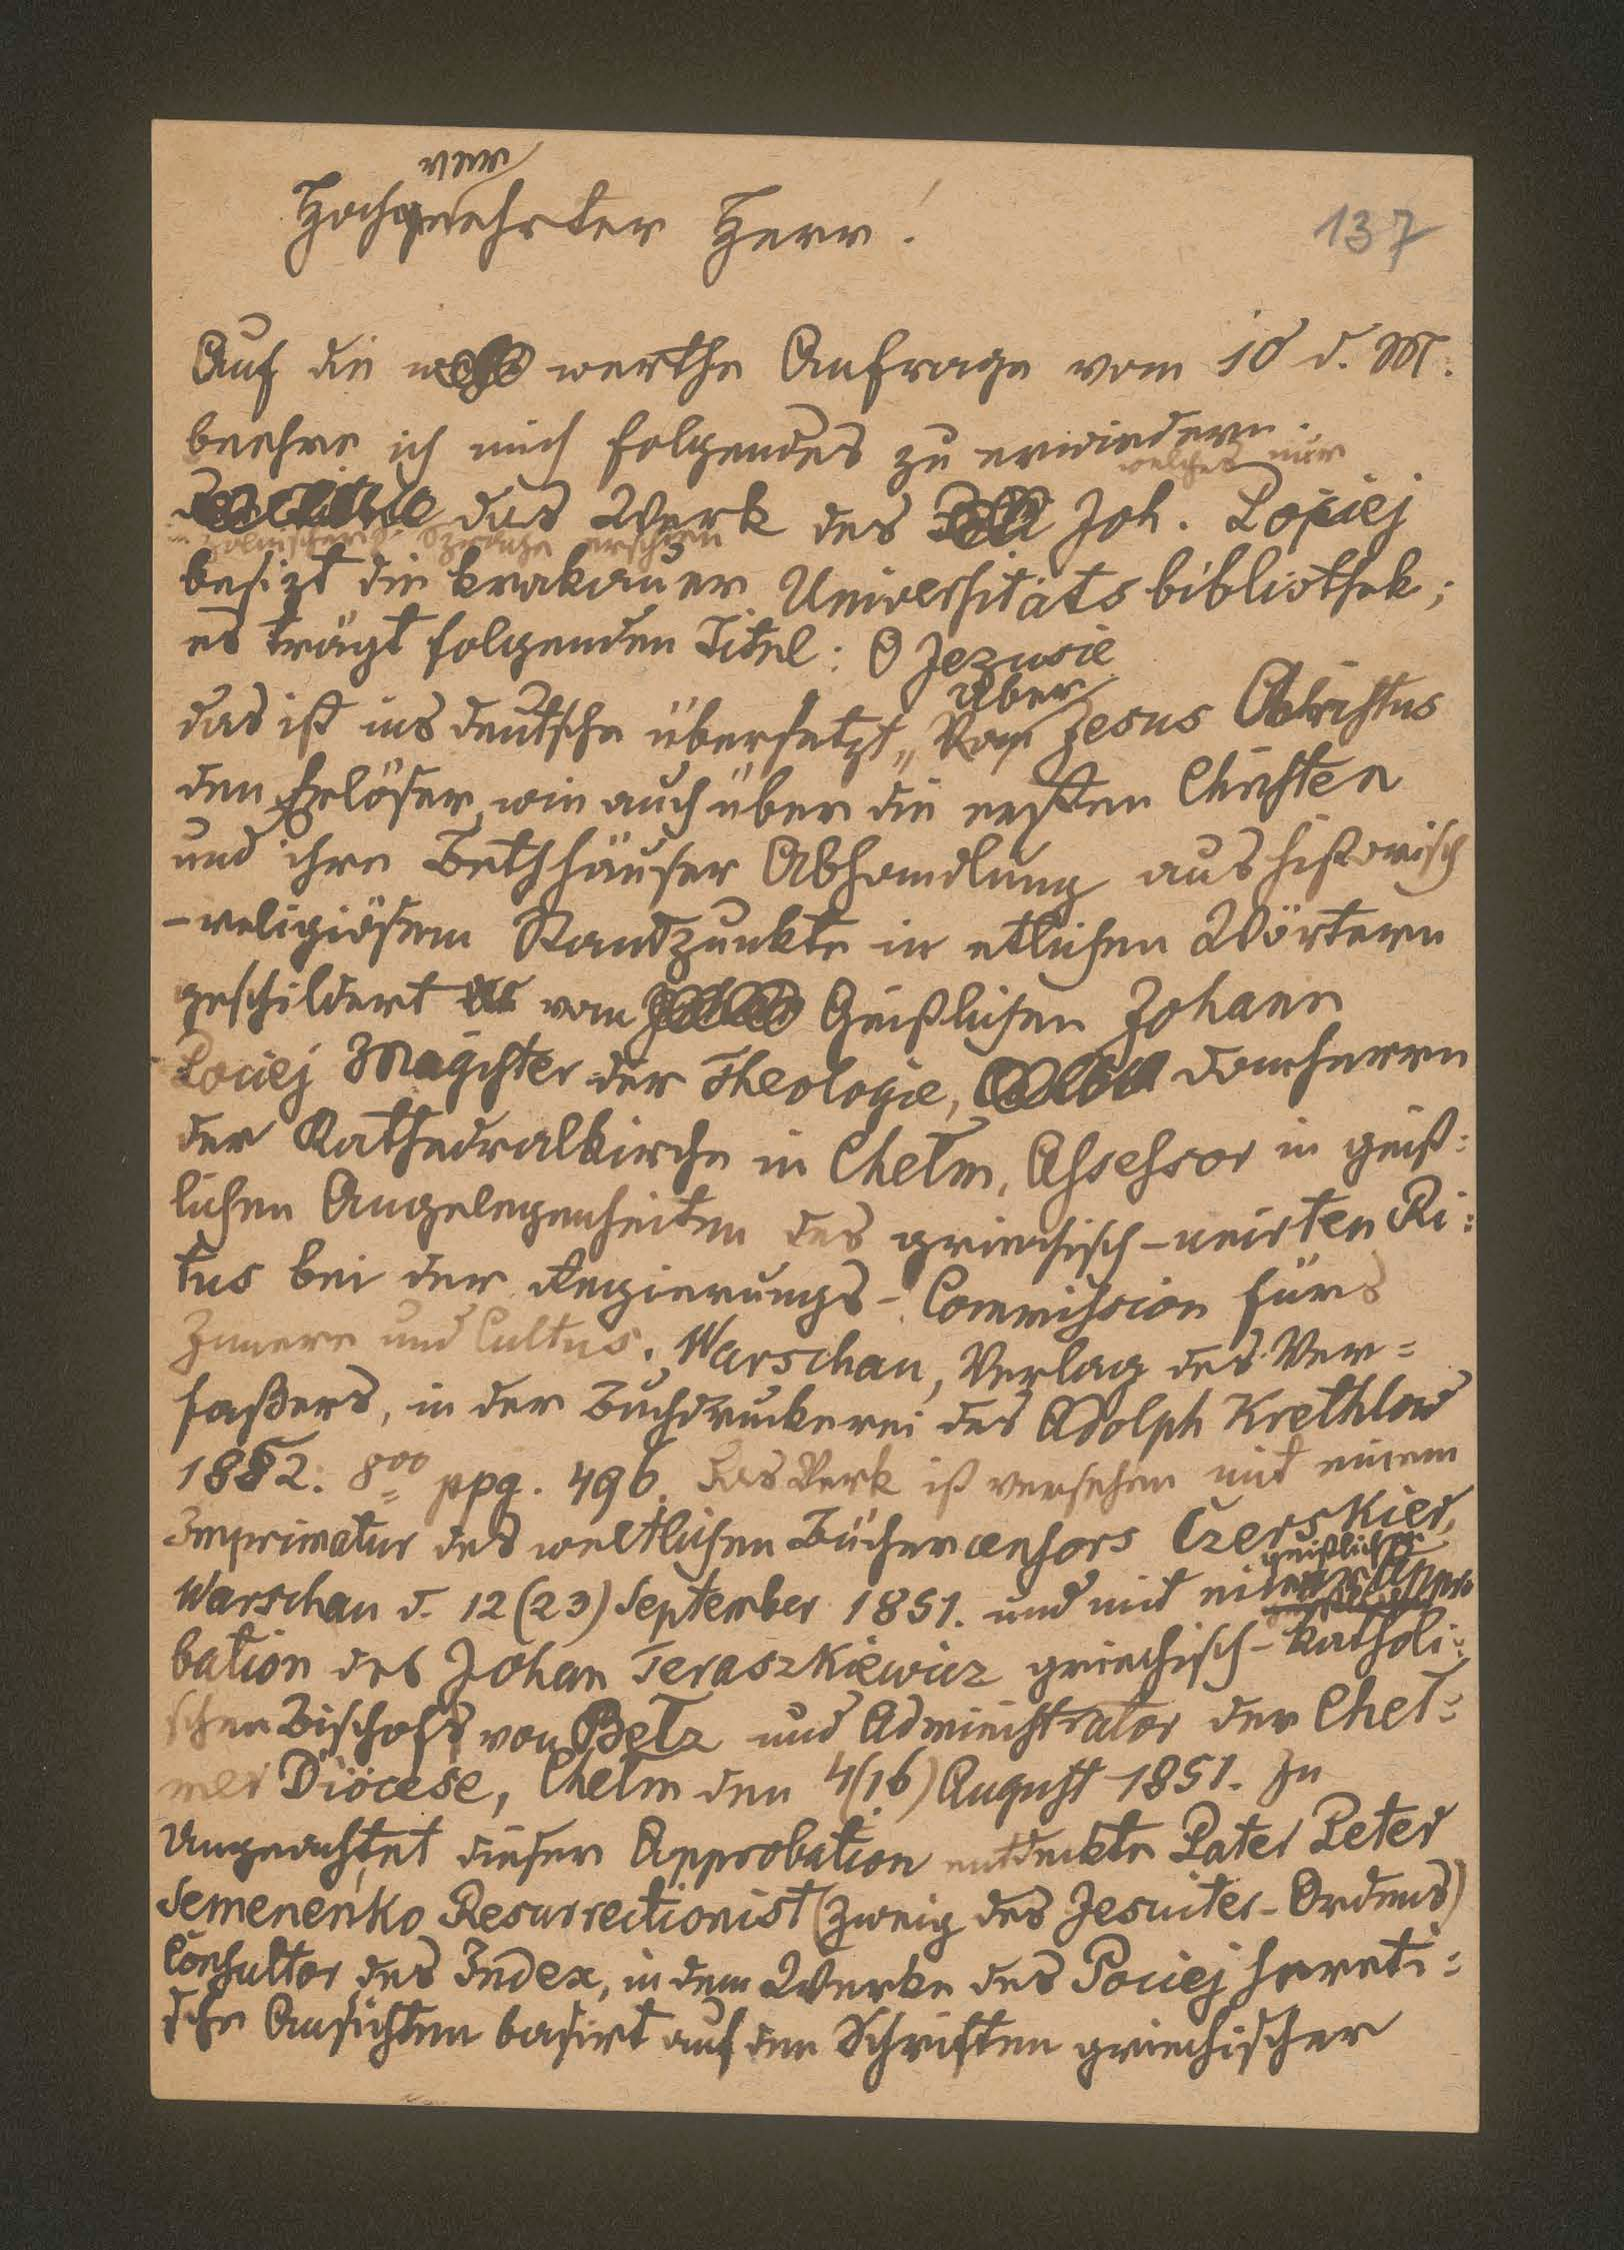 ver
Hochgeehrter Herr!
137
Auf die werthe Anfrage vom 10 d. M.
beehre ich mich folgendes zu erwiedern.
welches nur
das Werk des Joh. Pociej
in polnischer Sprache erschien
besizt die krakauer Universitätsbibliothek;
es trägt folgenden Titel: O Jezusie
über
das ist ins deutsche übersetzt „Vom Jesus Christus
den Erlöser, wie auch über die ersten Christen
und ihre Bethhäuser Abhandlung aus historisch
-religiösem Standpunkte in etlichen Wörtern
geschildert vom Geistlichen Johann
Pociej Magister der Theologie, Domherrn
der Kathedralkirche in Chełm, Assessor in geist=
lichen Angelegenheiten des griechisch-unirten Ri=
tus bei der Regierungs-Commission fürs
Innere und Cultus. Warschau, Verlag des Ver=
faßers, in der Buchdruckerei des Adolph Krethlow
1852. 8vo ppg. 496. Das Werk ist versehen mit einem
Imprimatur des weltlichen Büchercensors Czerskier,
geistlicher
Warschau d. 12 (23) September 1851. und mit einer Appro
bation des Johan Teraszkiewicz griechisch-katholi=
schen Bischofs von Bełz und Administrator der Cheł=
mer Diöcese, Chełm den 4(16) August 1851. In
Ungeachtet dieser Approbation entdeckte Pater Peter
Semenenko Resurrectionist (Zweig des Jesuiter-Ordens)
Consultor des Index, in dem Werke des Pociej hereti=
sche Ansichten basirt auf den Schriften griechischer